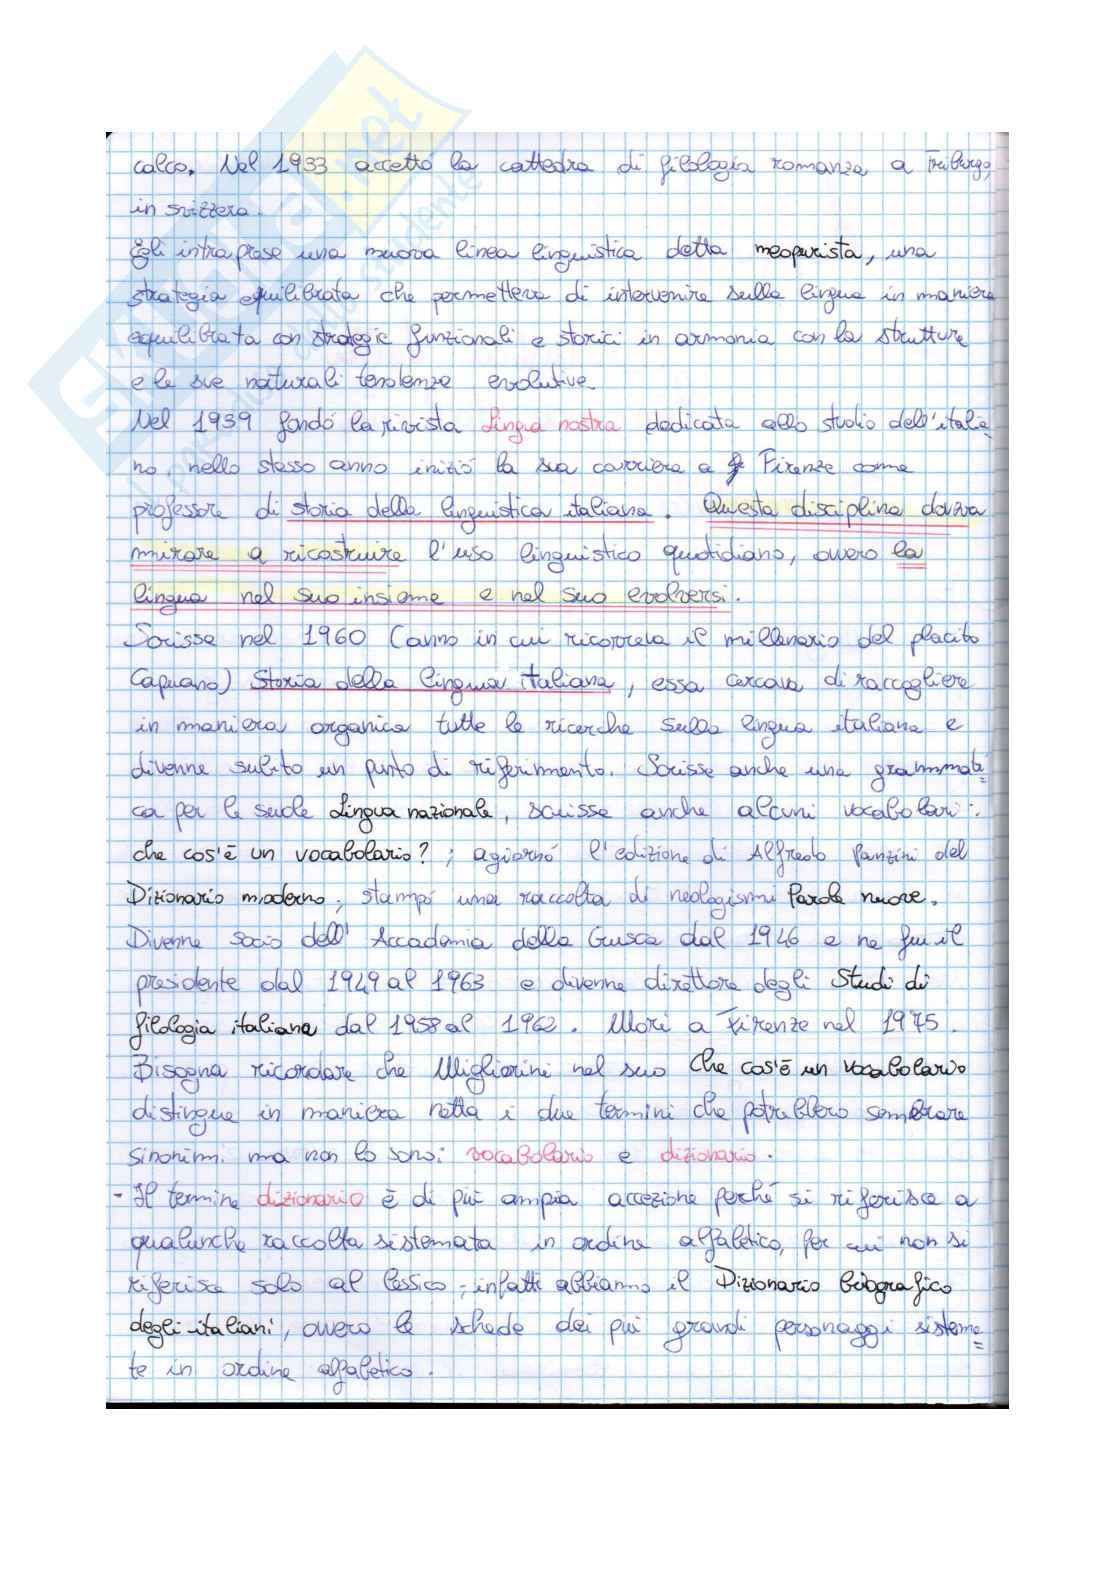 calco. Nel 1933 accettò la cattedra di filologia romanza a Friburgo,
in svizzera.
Egli intraprese una nuova linea linguistica detta neopurista, una
strategia equilibrata che permetteva di intervenire sulla lingua in maniera
equilibrata con strategie funzionali e storici in armonia con la strutture
e le sue naturali tendenze evolutive
Nel 1939 fondò la rivista Lingua nostra dedicata allo studio dell'italia
no, nello stesso anno iniziò la sua carriera a Firenze come
professore di storia della linguistica italiana. Questa disciplina doveva
mirare a ricostruire l'uso linguistico quotidiano, ovvero la
lingua nel suo insieme e nel suo evolversi.
Scrisse nel 1960 (anno in cui ricorreva il millenario del placito
Capuano) Storia della lingua italiana, essa cercava di raccogliere
in maniera organica tutte le ricerche sulla lingua italiana e
divenne subito un punto di riferimento. Scrisse anche una grammati=
ca per le suole Lingua nazionale, scrisse anche alcuni vocabolari:
che cos'è un vocabolario? ; agiornò l'edizione di Alfredo Panzini del
Dizionario moderno; stampò una raccolta di neologismi Parole nuove.
Divenne socio dell'Accademia della Crusca dal 1946 e ne fu il
presidente dal 1949 al 1963 e divenne direttore degli Studi di
filologia italiana dal 1958 al 1962. Morì a Firenze nel 1975.
Bisogna ricordare che Migliorini nel suo Che cos'è un vocabolario
distingue in maniera netta i due termini che potrebbero sembrare
sinonimi ma non lo sono: vocabolario e dizionario.
- Il termine dizionario è di più ampia accezione perché si riferisce a
qualunche raccolta sistemata in ordine alfabetico, per cui non si
riferisce solo al lessico; infatti abbiamo il Dizionario biografico
degli italiani, ovvero le schede dei più grandi personaggi sistema=
te in ordine alfabetico.
SKUOLA.net